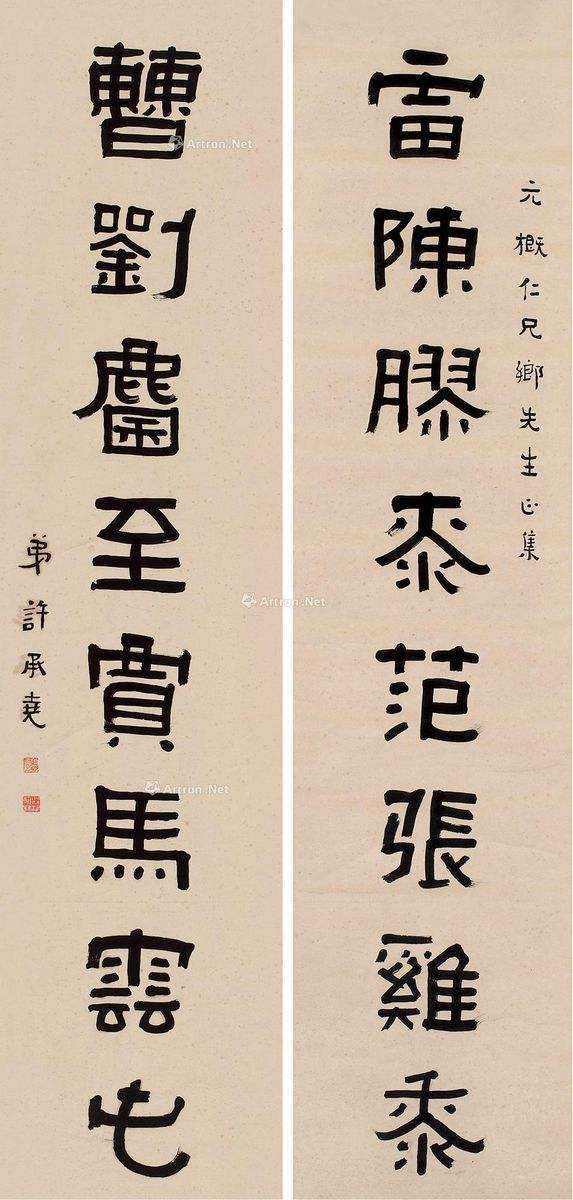 雷陳膠桼范張雞黍
元概仁兄鄉先生正集
曹劉麕至賓馬雲屯
弟許承堯
Artron.Net
Artron.Net
Artron.Net